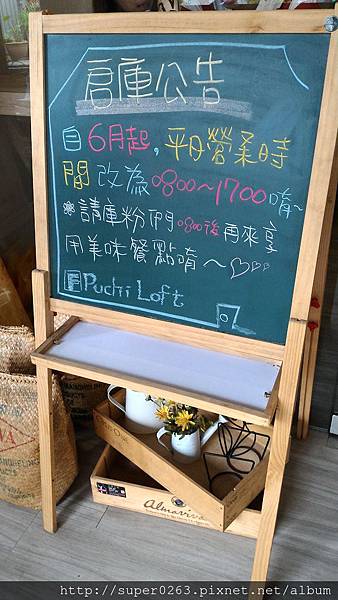 倉庫公告
自6月起, 平日營業時
間改為0800~1700唷~
※請庫粉們0800後再來享
用美味餐點唷~♡♡♡
Puchi Loft
Almaviva
http://super0263.pixnet.net/album